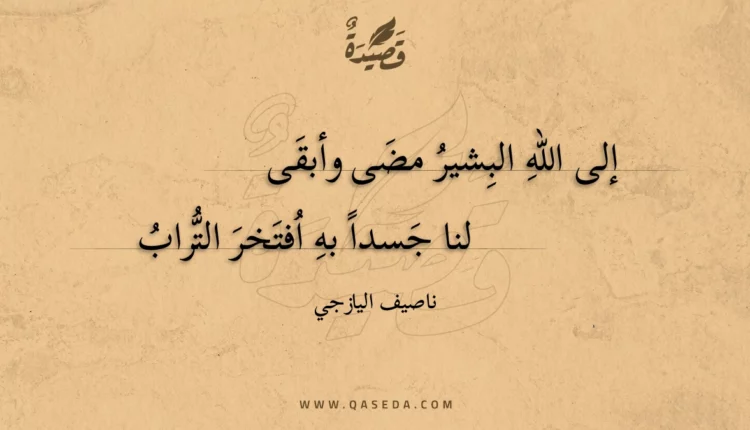 قَصِيْدَةٌ
إلى اللهِ البِشيرُ مضَى وأبقَى
لنا جَسداً بهِ اُفتَخرَ التُّرابُ
ناصيف اليازجي
WWW.QASEDA.COM